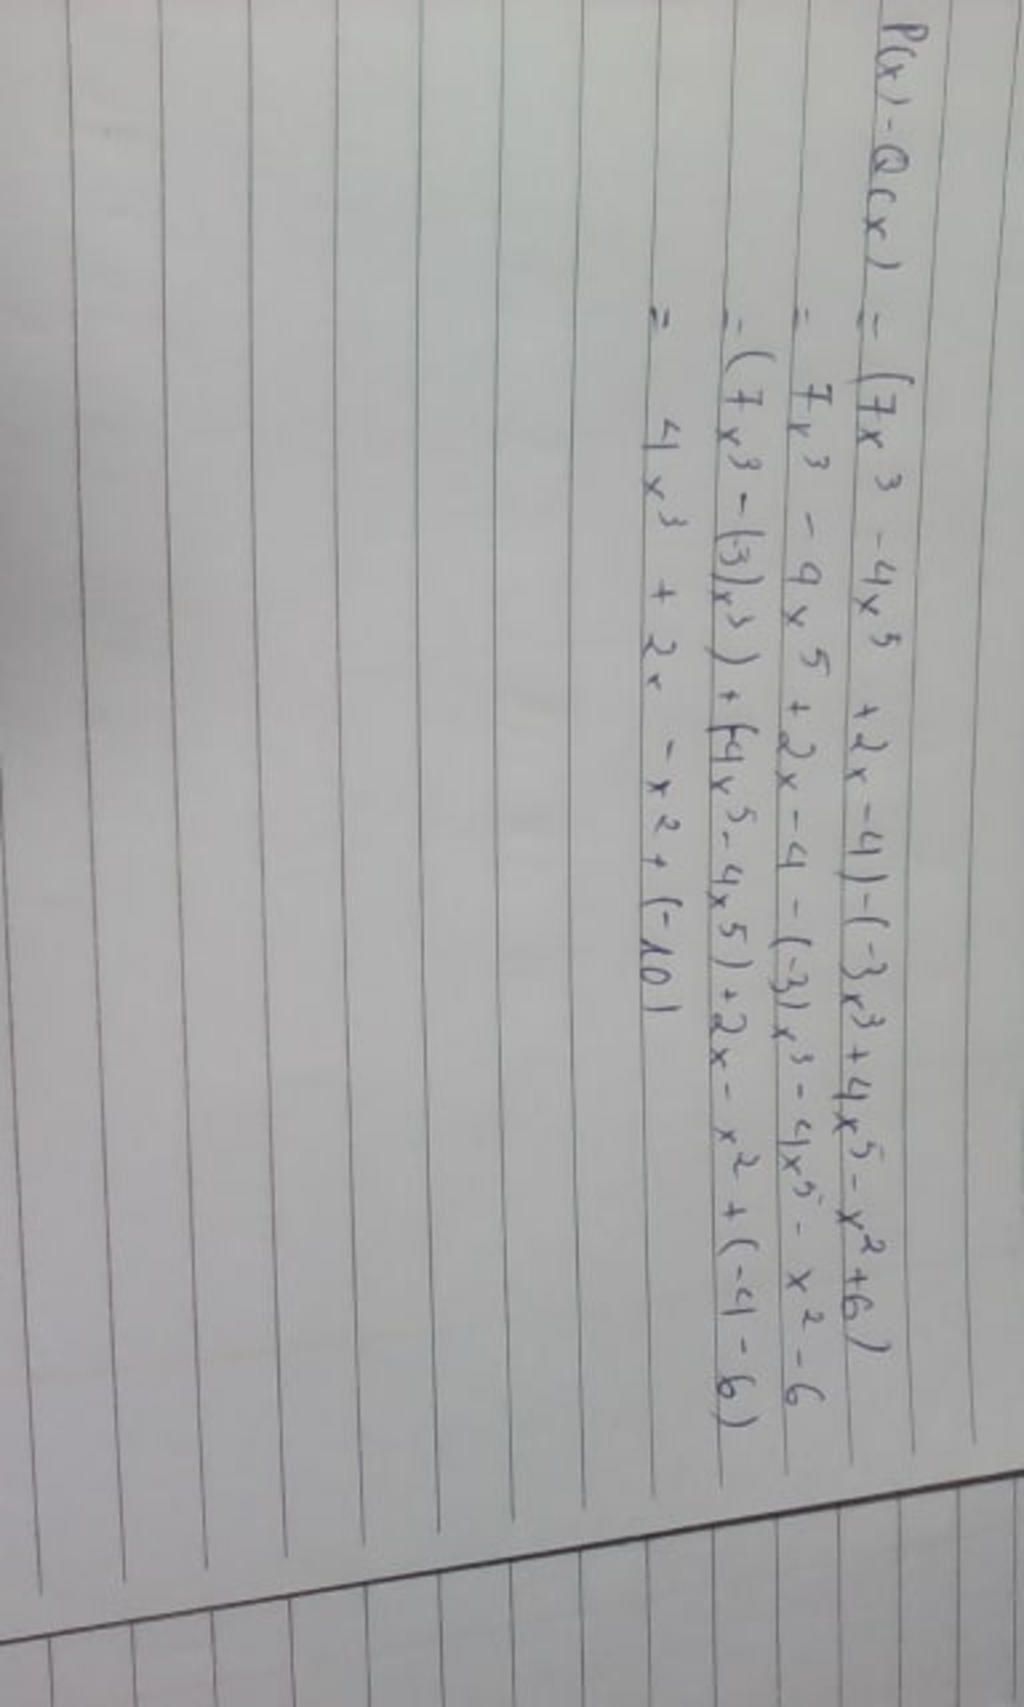 P(x) - Q(x) = (7x³ - 4x⁵ + 2x - 4) - (-3x³ + 4x⁵ - x² + 6)
= 7x³ - 4x⁵ + 2x - 4 - (-3)x³ - 4x⁵ - x² - 6
= (7x³ - (-3)x³) + (-4x⁵ - 4x⁵) + 2x - x² + (-4 - 6)
= 4x³ + 2x - x² + (-10)